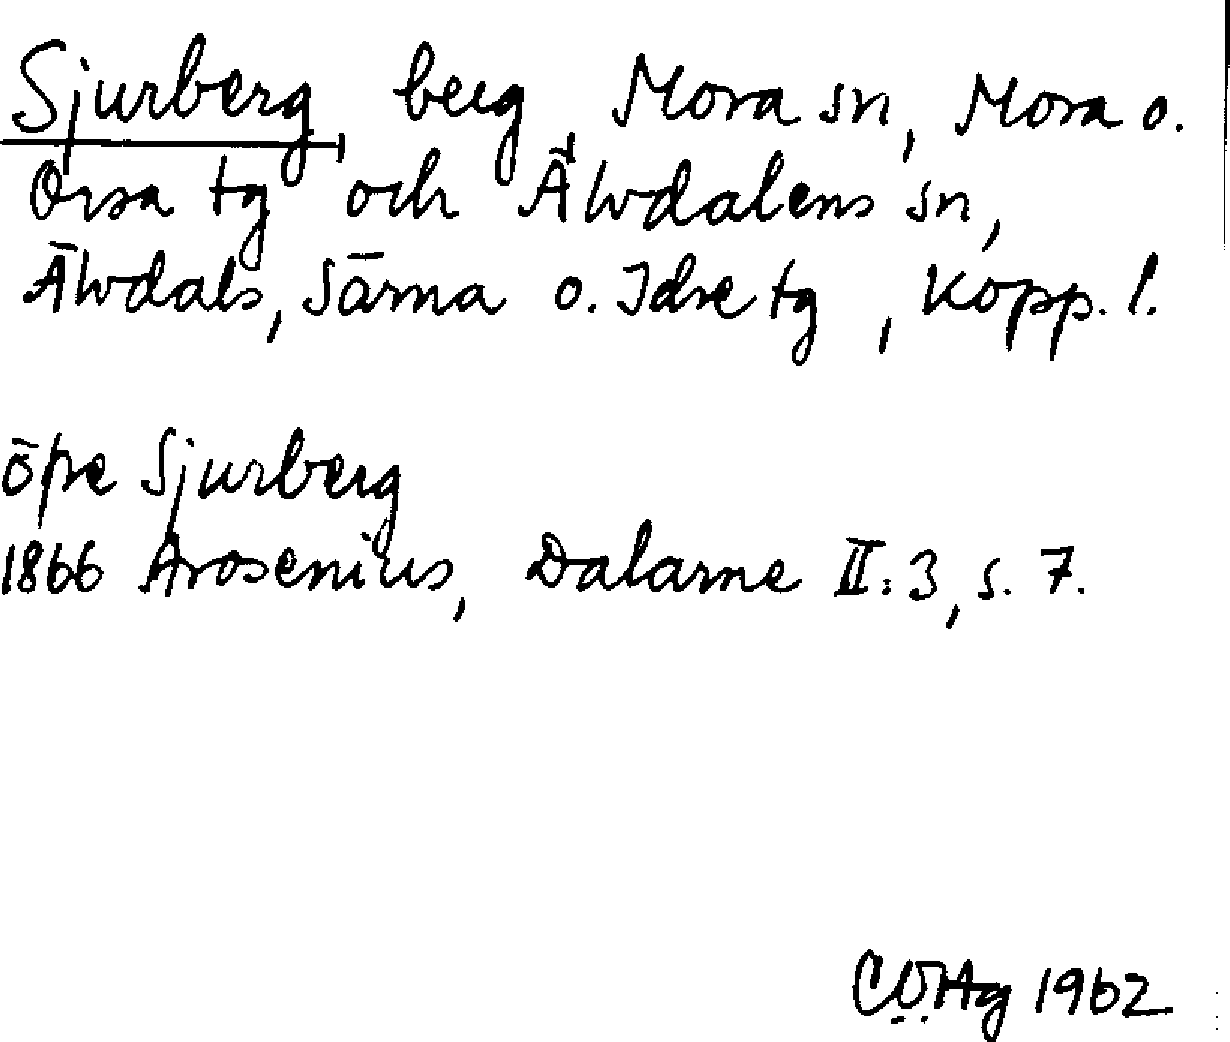 Sjurberg, berg, Mora sn, Mora o.
Orsa tg och Älvdalens sn,
Älvdals, Särna o. Idre tg, Kopp. l.
öfre Sjurberg
1866 Arosenius, Dalarne II:3, s. 7.
1962